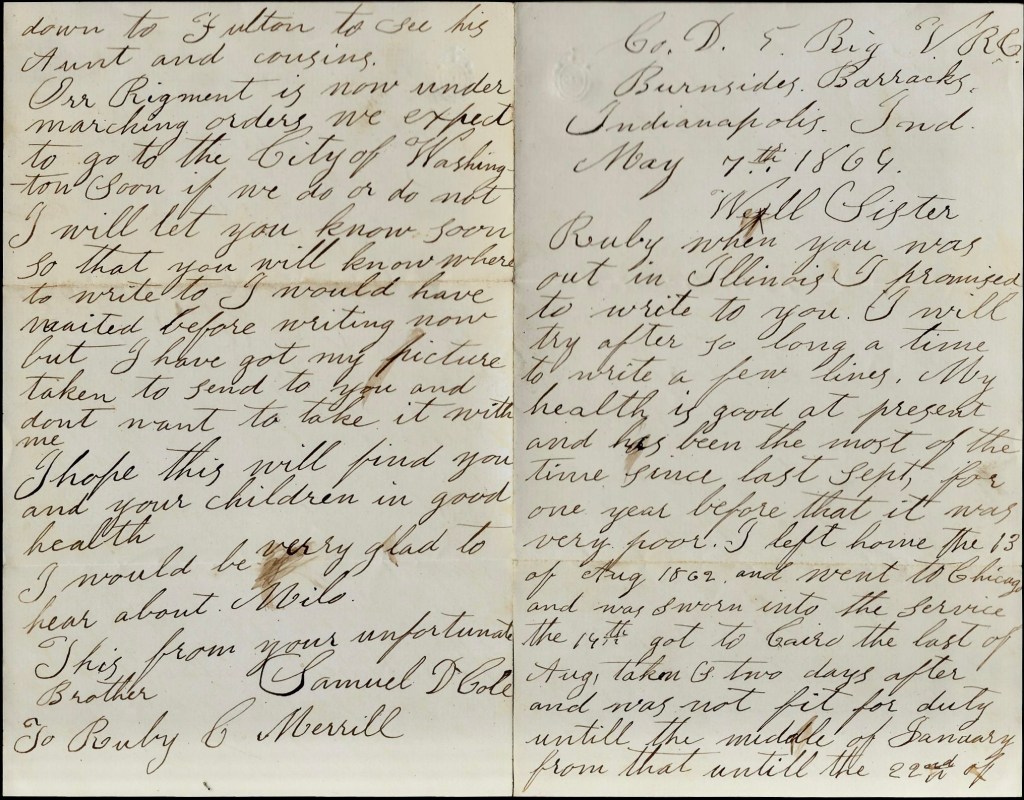 Co. D. 5. Rig V R.C.
Burnsides. Barracks.
Indianapolis. Ind.
May 7th. 1864.
Well Sister
Ruby when you was
out in Illinois I promised
to write to you. I will
try after so long a time
to write a few lines. My
health is good at present
and has been the most of the
time since last Sept, for
one year before that it was
very poor. I left home the 13
of Aug 1862 and went to Chicago
and was sworn into the service
the 14th got to Cairo the last of
Aug, taken two days after
and was not fit for duty
untill the middle of Janaary
from that untill the 22nd of
down to Fulton to see his
Aunt and cousins.
Orr Rigment is now under
marching orders we expect
to go to the City of Washing-
-ton soon if we do or do not
I will let you know soon
so that you will know where
to write to I would have
waited before writing now
but I have got my picture
taken to send to you and
dont want to take it with
me
I hope this will find you
and your children in good
health
I would be verry glad to
hear about. Milo.
This from your unfortunate
Brother Samuel D Cole
To Ruby C Merrill